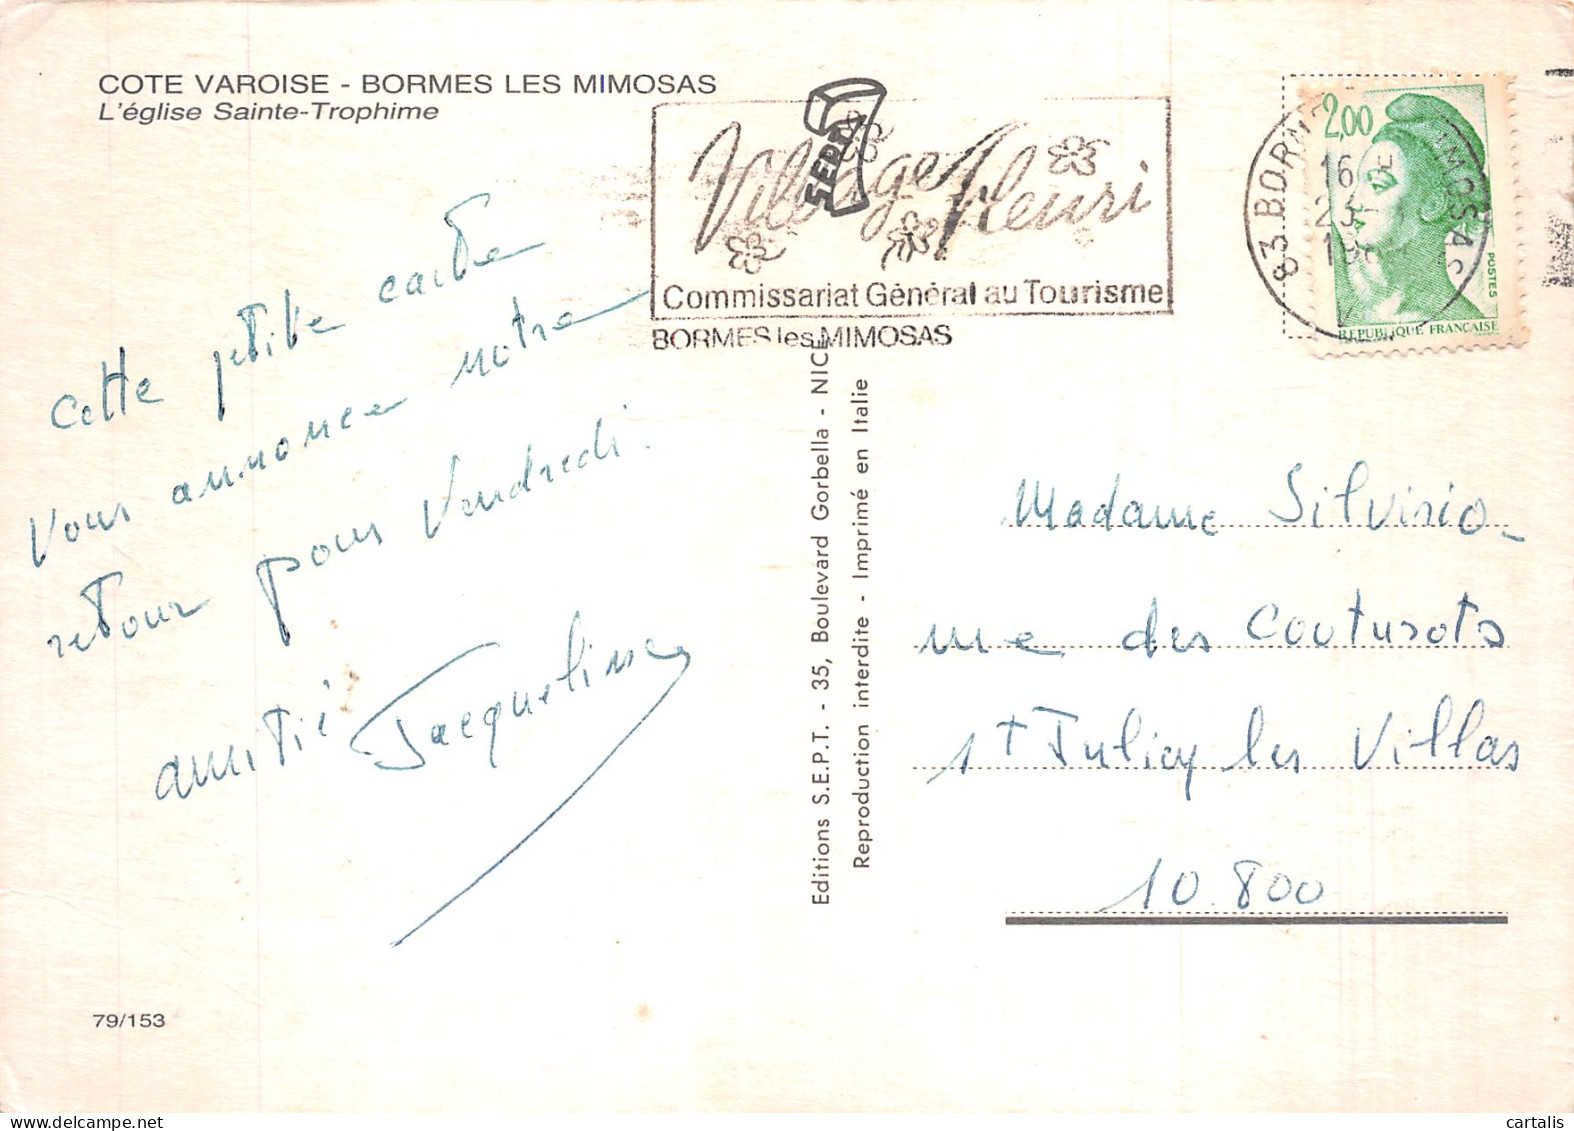 COTE VAROISE - BORMES LES MIMOSAS
L'église Sainte-Trophime
SEPT
Village fleuri
Commissariat Général au Tourisme
BORMES les MIMOSAS
2,00
POSTES
REPUBLIQUE FRANÇAISE
83 BORMES MIMOSAS
16
23
Cette petite carte
vous annonce notre
retour pour Vendredi.
amitié Jacqueline
Editions S.E.P.T. - 35, Boulevard Gorbella - NICE
Reproduction interdite - Imprimé en Italie
Madame Silvisio
rue des Couturots
St Julien les Villas
10.800
79/153
cartalis